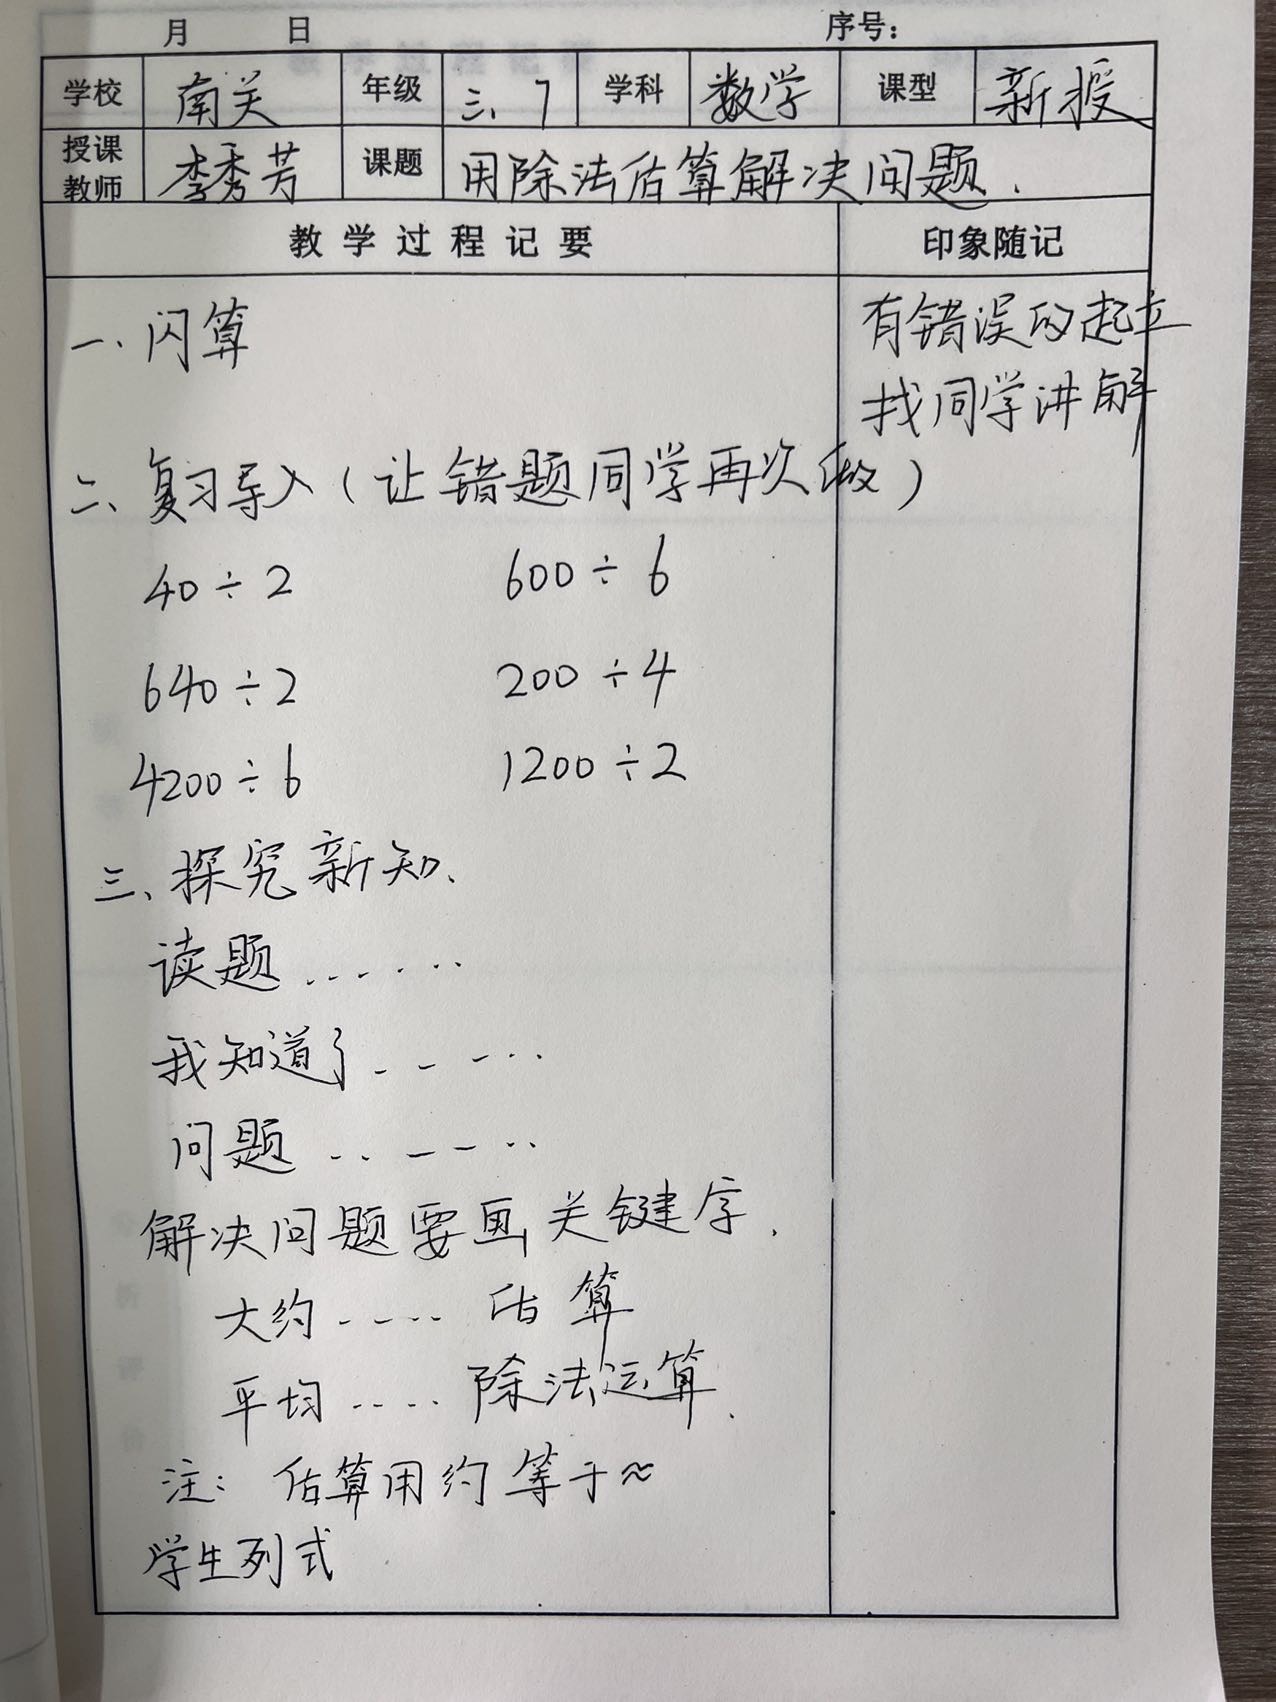 月 日 序号:
学校 南关 年级 三.7 学科 数学 课型 新授
授课教师 李秀芳 课题 用除法估算解决问题.
教学过程记要 印象随记
一、闪算
有错误的起立
找同学讲解
二、复习导入(让错题同学再次做)
40÷2 600÷6
640÷2 200÷4
4200÷6 1200÷2
三、探究新知、
读题......
我知道了......
问题......
解决问题要画关键字.
大约.... 估算
平均.... 除法运算.
注: 估算用约等于≈
学生列式